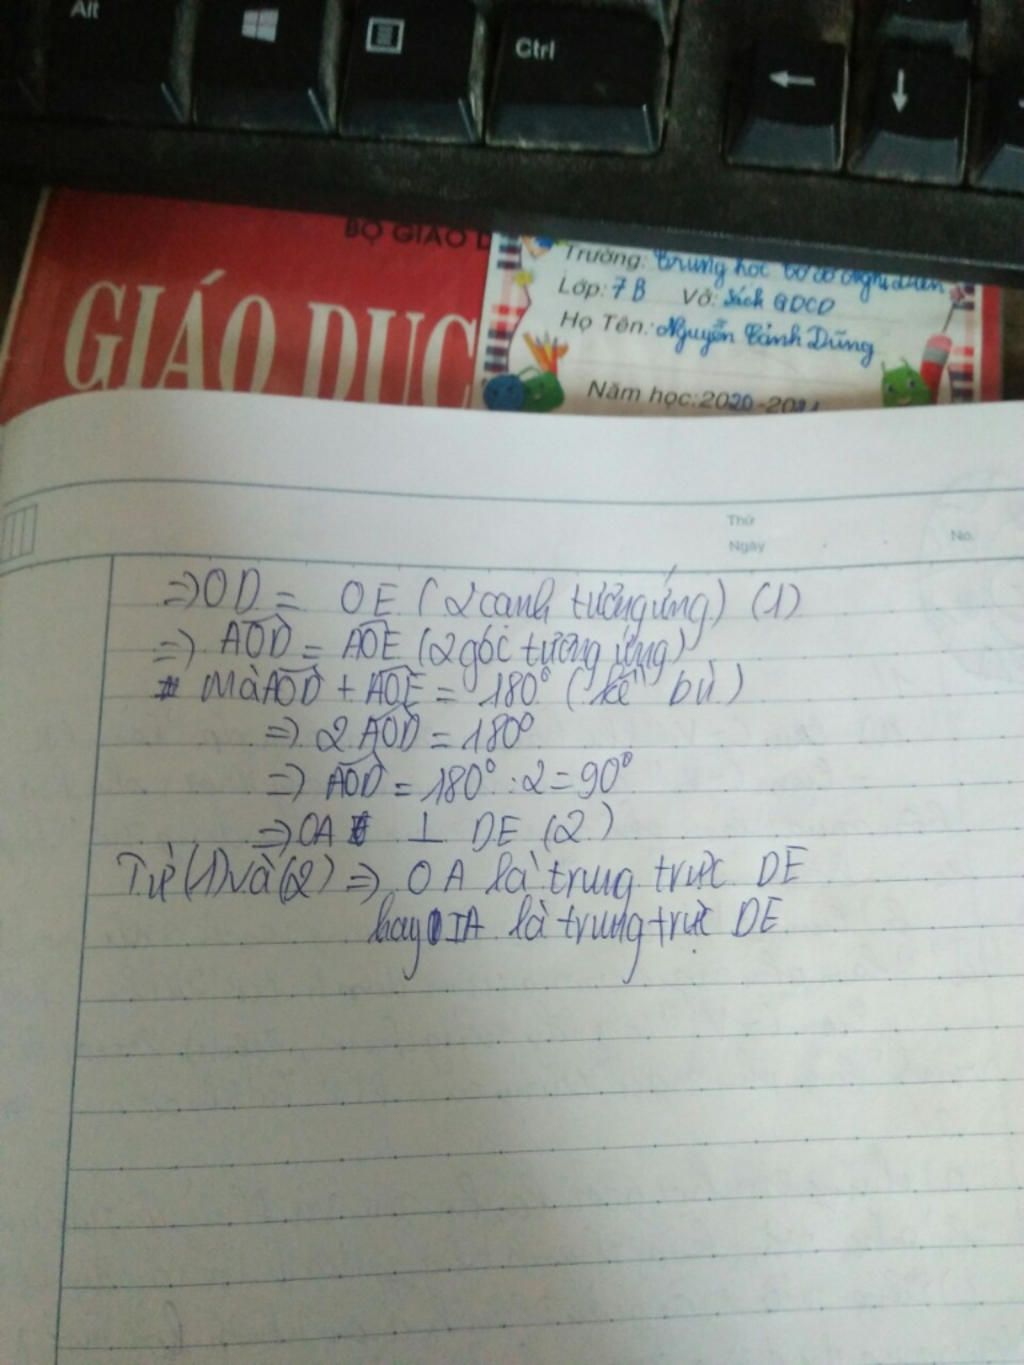 Alt
Ctrl
BỘ GIÁO D
GIÁO DỤC
Trường: Trung học cơ sở Nghi
Lớp: 7B Vở: Sách GDCD
Họ Tên: Nguyễn Cảnh Dũng
Năm học: 2020-2021
Thứ
Ngày
No.
=> OD = OE (2 cạnh tương ứng) (1)
=> AOD = AOE (2 góc tương ứng)
Mà AOD + AOE = 180° (kề bù)
=> 2 AOD = 180°
=> AOD = 180° : 2 = 90°
=> OA ⊥ DE (2)
Từ (1) và (2) => OA là trung trực DE
hay IA là trung trực DE